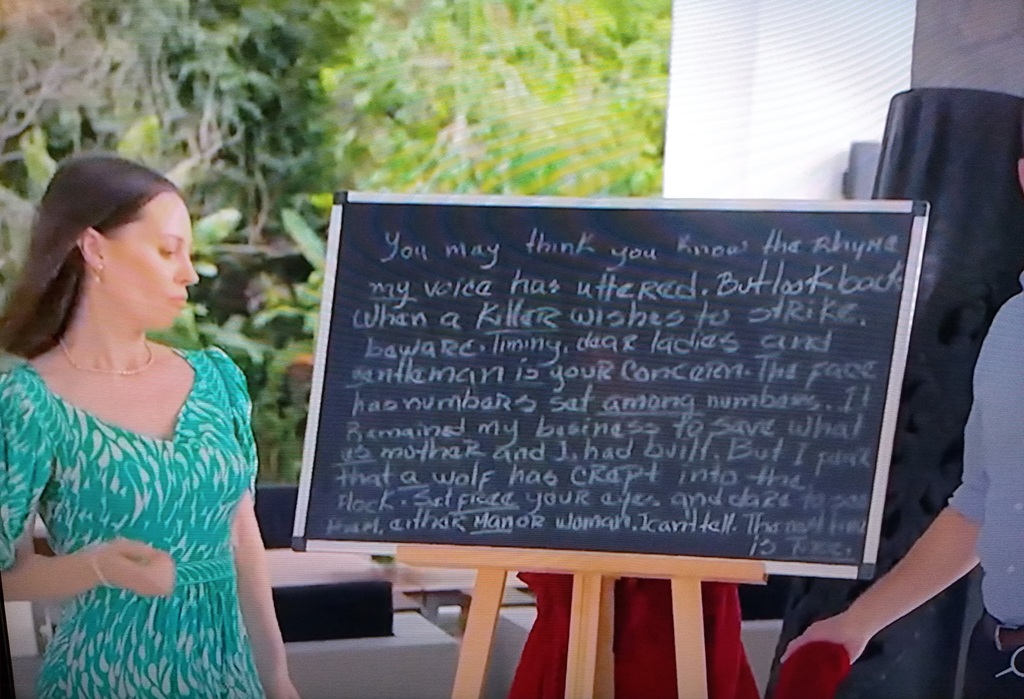 You may think you know the Rhyme
my voice has uttered. But look back
when a killer wishes to strike.
beware. Timing, dear ladies and
gentleman is your concern. The face
has numbers set among numbers. It
Remained my business to save what
is mother and I had built. But I
that a wolf has crept into the
flock. Set your eyes and dare to see
either Man or woman. I can't tell. The
is